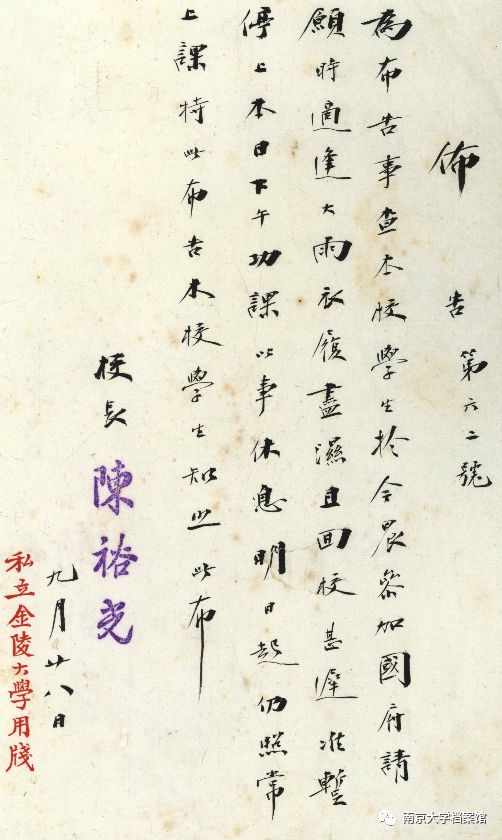 佈告第六二號
為布告事查本校學生於今晨參加國府請
願時適逢大雨衣履盡濕且回校甚遲准暫
停上本日下午功課以事休息明日起仍照常
上課特此布告本校學生知之此布
校長 陳裕光
九月廿八日
私立金陵大學用牋
南京大学档案馆